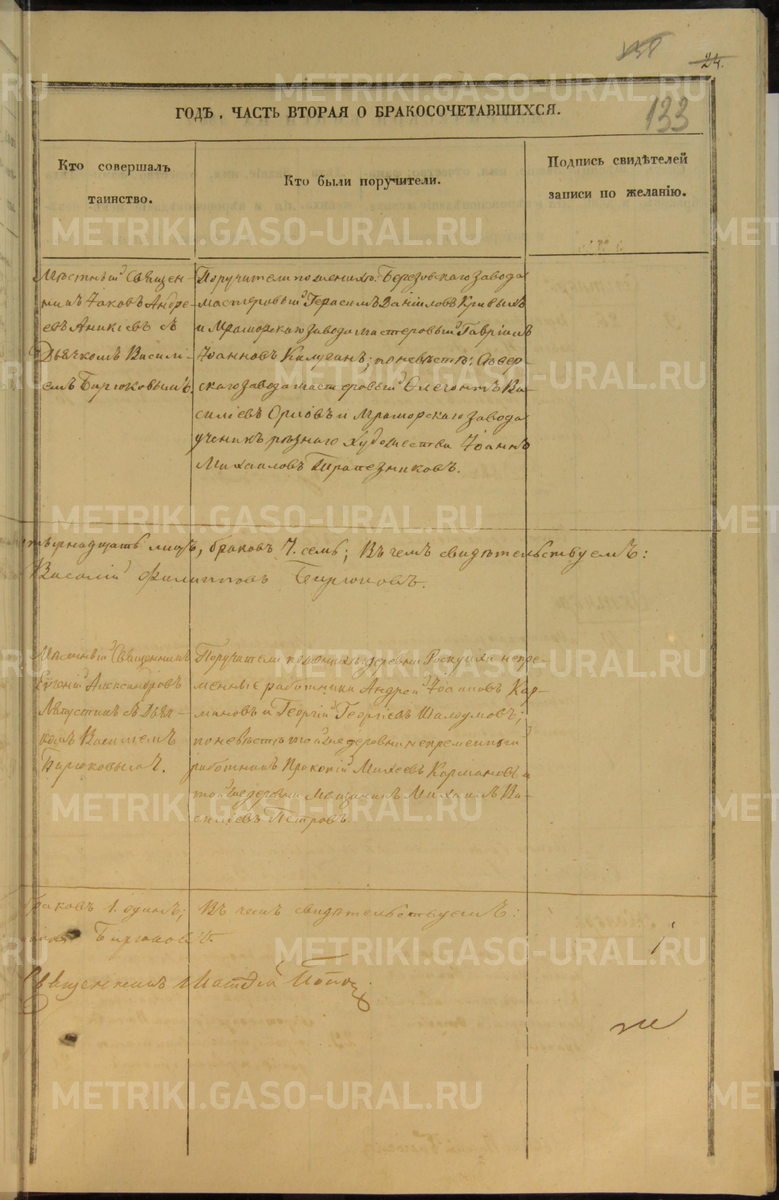 24.
133
ГОДЪ, ЧАСТЬ ВТОРАЯ О БРАКОСОЧЕТАВШИХСЯ.
Кто совершалъ
таинство.
Кто были поручители.
Подпись свидѣтелей
записи по желанію.
Мѣстный Священ-
никъ Іаковъ Андре-
евъ Аникіевъ съ
Дьячкомъ Василі-
емъ Бирюковымъ.
Поручители по женихѣ: Березовскаго завода
мастеровый Герасимъ Даніиловъ
и Мраморскаго завода мастеровый Гавріилъ
Іоанновъ; по невѣстѣ: Север-
скаго завода мастеровый Ва-
силіевъ Орловъ и Мраморскаго завода
ученикъ рѣзнаго художества Іоаннъ
Михаиловъ Трапезниковъ.
лицъ, браковъ 7. семь; Въ чемъ свидѣтельствуемъ:
Василій Филипповъ Бирюковъ.
Мѣстный Священникъ
Евгеній Александровъ
съ Дьяч-
комъ Василіемъ
Бирюковымъ.
Поручители по женихѣ: деревни непре-
менные работники Андрей Іоанновъ Кар-
мановъ и Георгій Георгіевъ
по невѣстѣ той же деревни непременный
работникъ Прокопій Михеевъ Кармановъ и
той же деревни Михаилъ Ва-
силіевъ Петровъ
браковъ 1. одинъ; Въ чемъ свидѣтельствуемъ:
Бирюковъ.
Священникъ Поповъ
METRIKI.GASO-URAL.RU